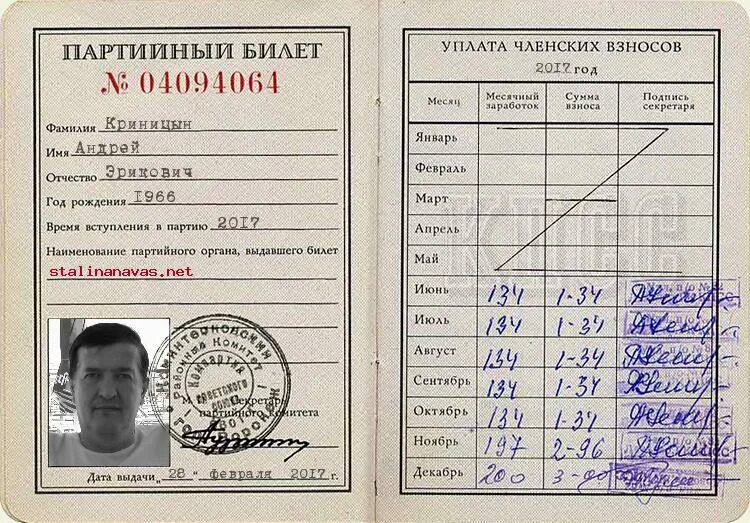 ПАРТИЙНЫЙ БИЛЕТ
№ 04094064
Фамилия Криницын
Имя Андрей
Отчество Эрикович
Год рождения 1966
Время вступления в партию 2017
Наименование партийного органа, выдавшего билет
stalinanavas.net
Районный Комитет
Компартия
Советского
М
секретарь
партийного комитета
Дата выдачи „ 28 “ февраля 2017 г.
УПЛАТА ЧЛЕНСКИХ ВЗНОСОВ
2017 год
Месяц Месячный заработок Сумма взноса Подпись секретаря
Январь
Февраль
Март
Апрель
Май
КПСС
Июнь 134 1-34
Июль 134 1-34
Август 134 1-34
Сентябрь 134 1-34
Октябрь 134 1-34
Ноябрь 197 2-96
Декабрь 200